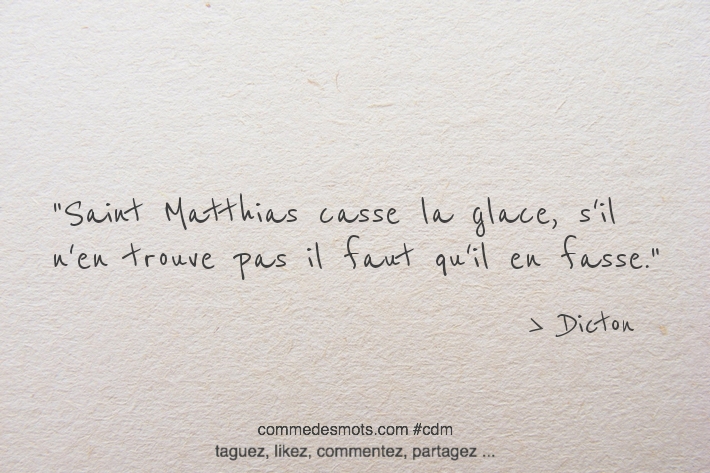 "Saint Matthias casse la glace, s'il
n'en trouve pas il faut qu'il en fasse."
> Dicton
commedesmots.com #cdm
taguez, likez, commentez, partagez ...